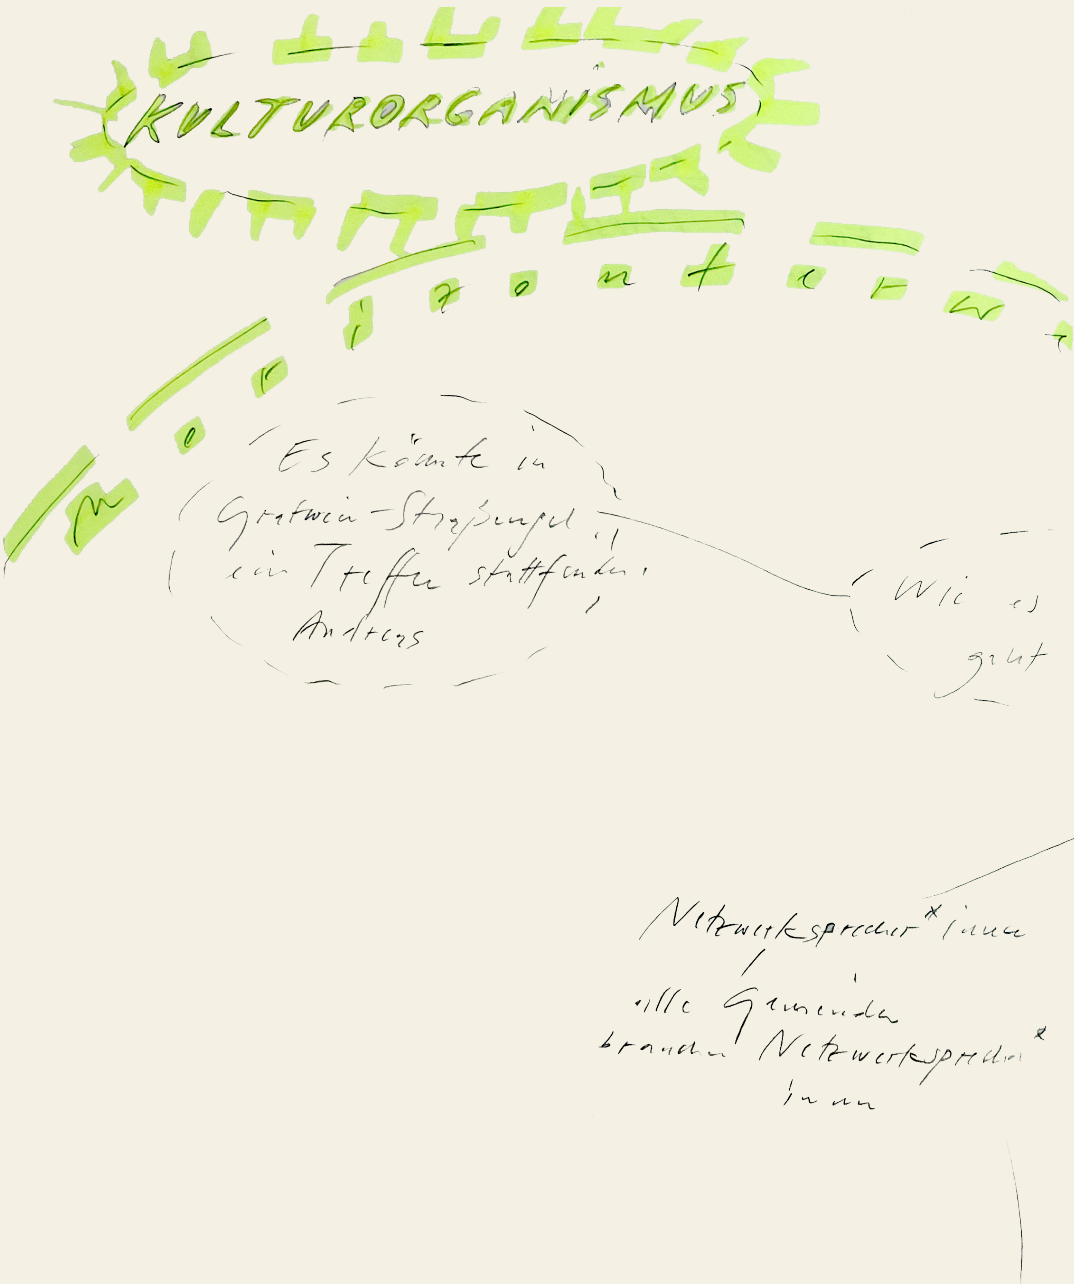 KULTURORGANISMUS
Horizonterwe
Es könnte in
Gratwein-Straßengel
ein Treffen stattfinden.
Andreas
Wie es
geht
Netzwerksprecher*innen
alle Gemeinden
brauchen Netzwerksprecher*
innen